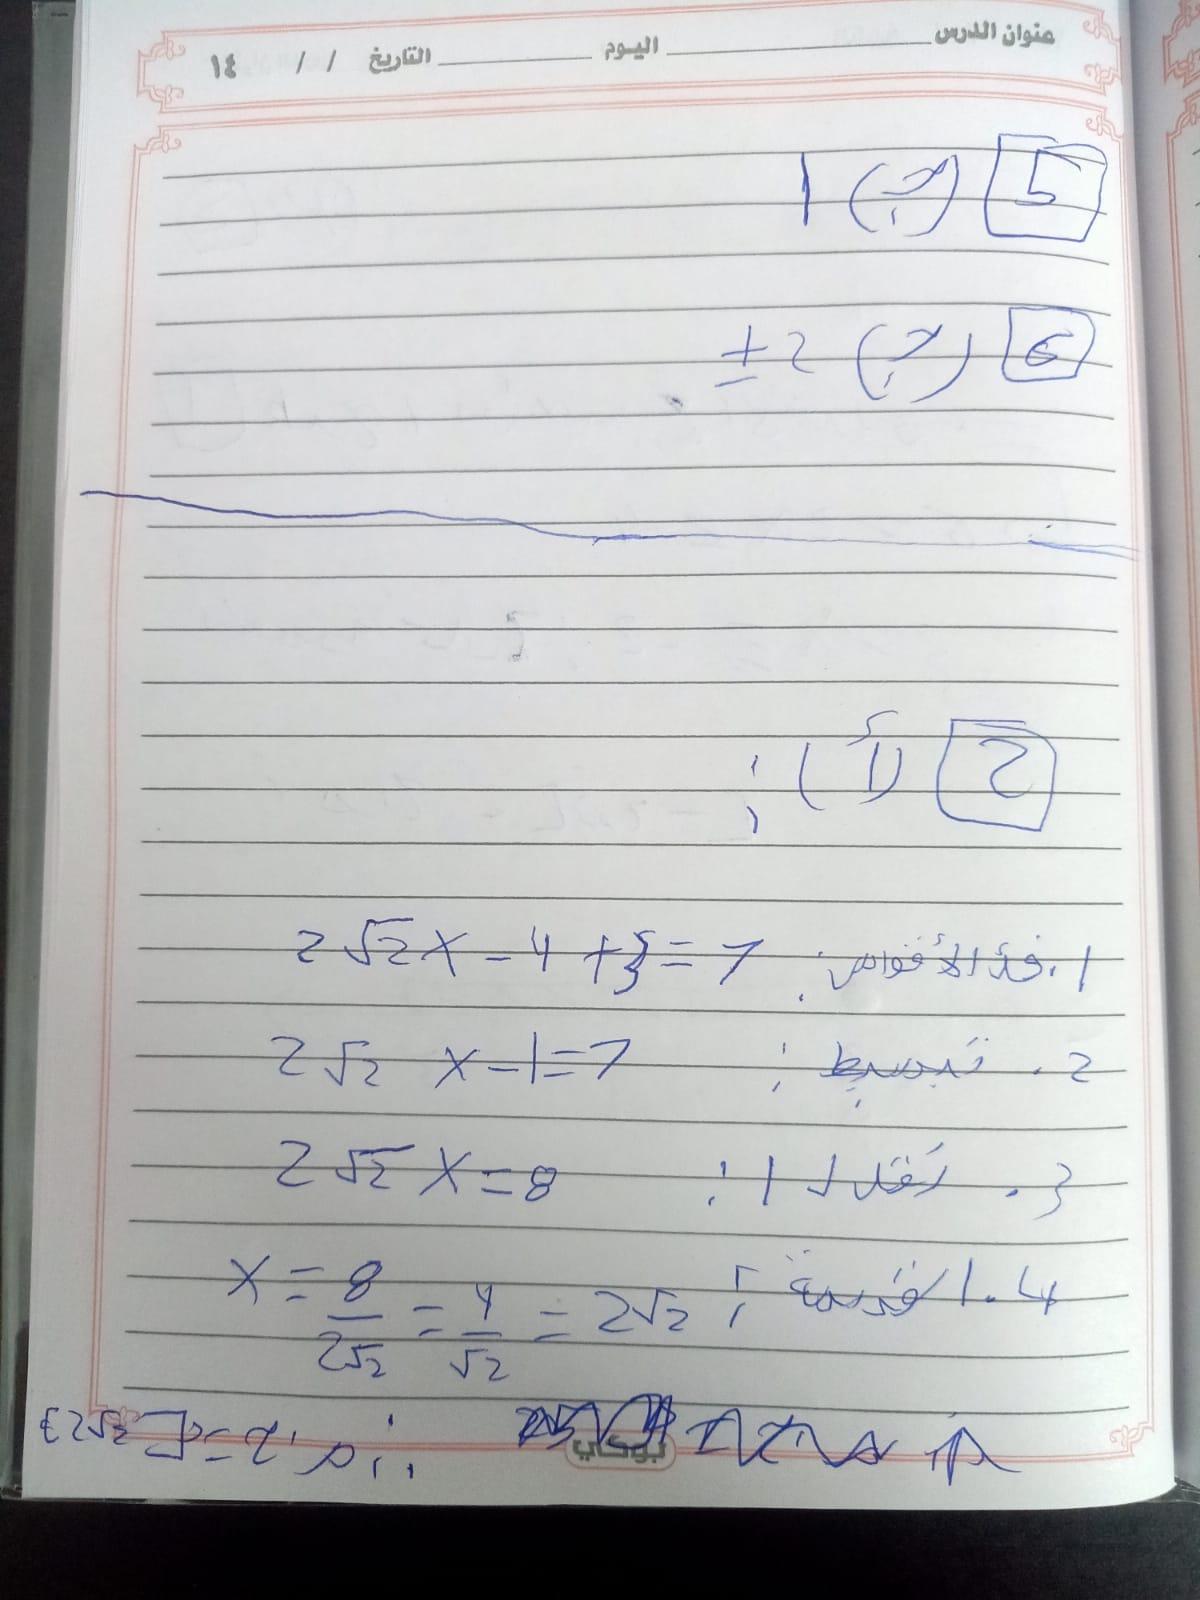 عنوان الدرس اليوم التاريخ / / ١٤
5 (ج) 1
6 (ج) ±2
2 (أ) :
1. فك الأقواس: 2√2x - 4 + 3 = 7
2. تبسيط: 2√2 x - 1 = 7
3. نقل 1: 2√2 x = 8
4. القسمة: x = 8/2√2 = 4/√2 = 2√2
م.ح = {2√2}
بوكاي